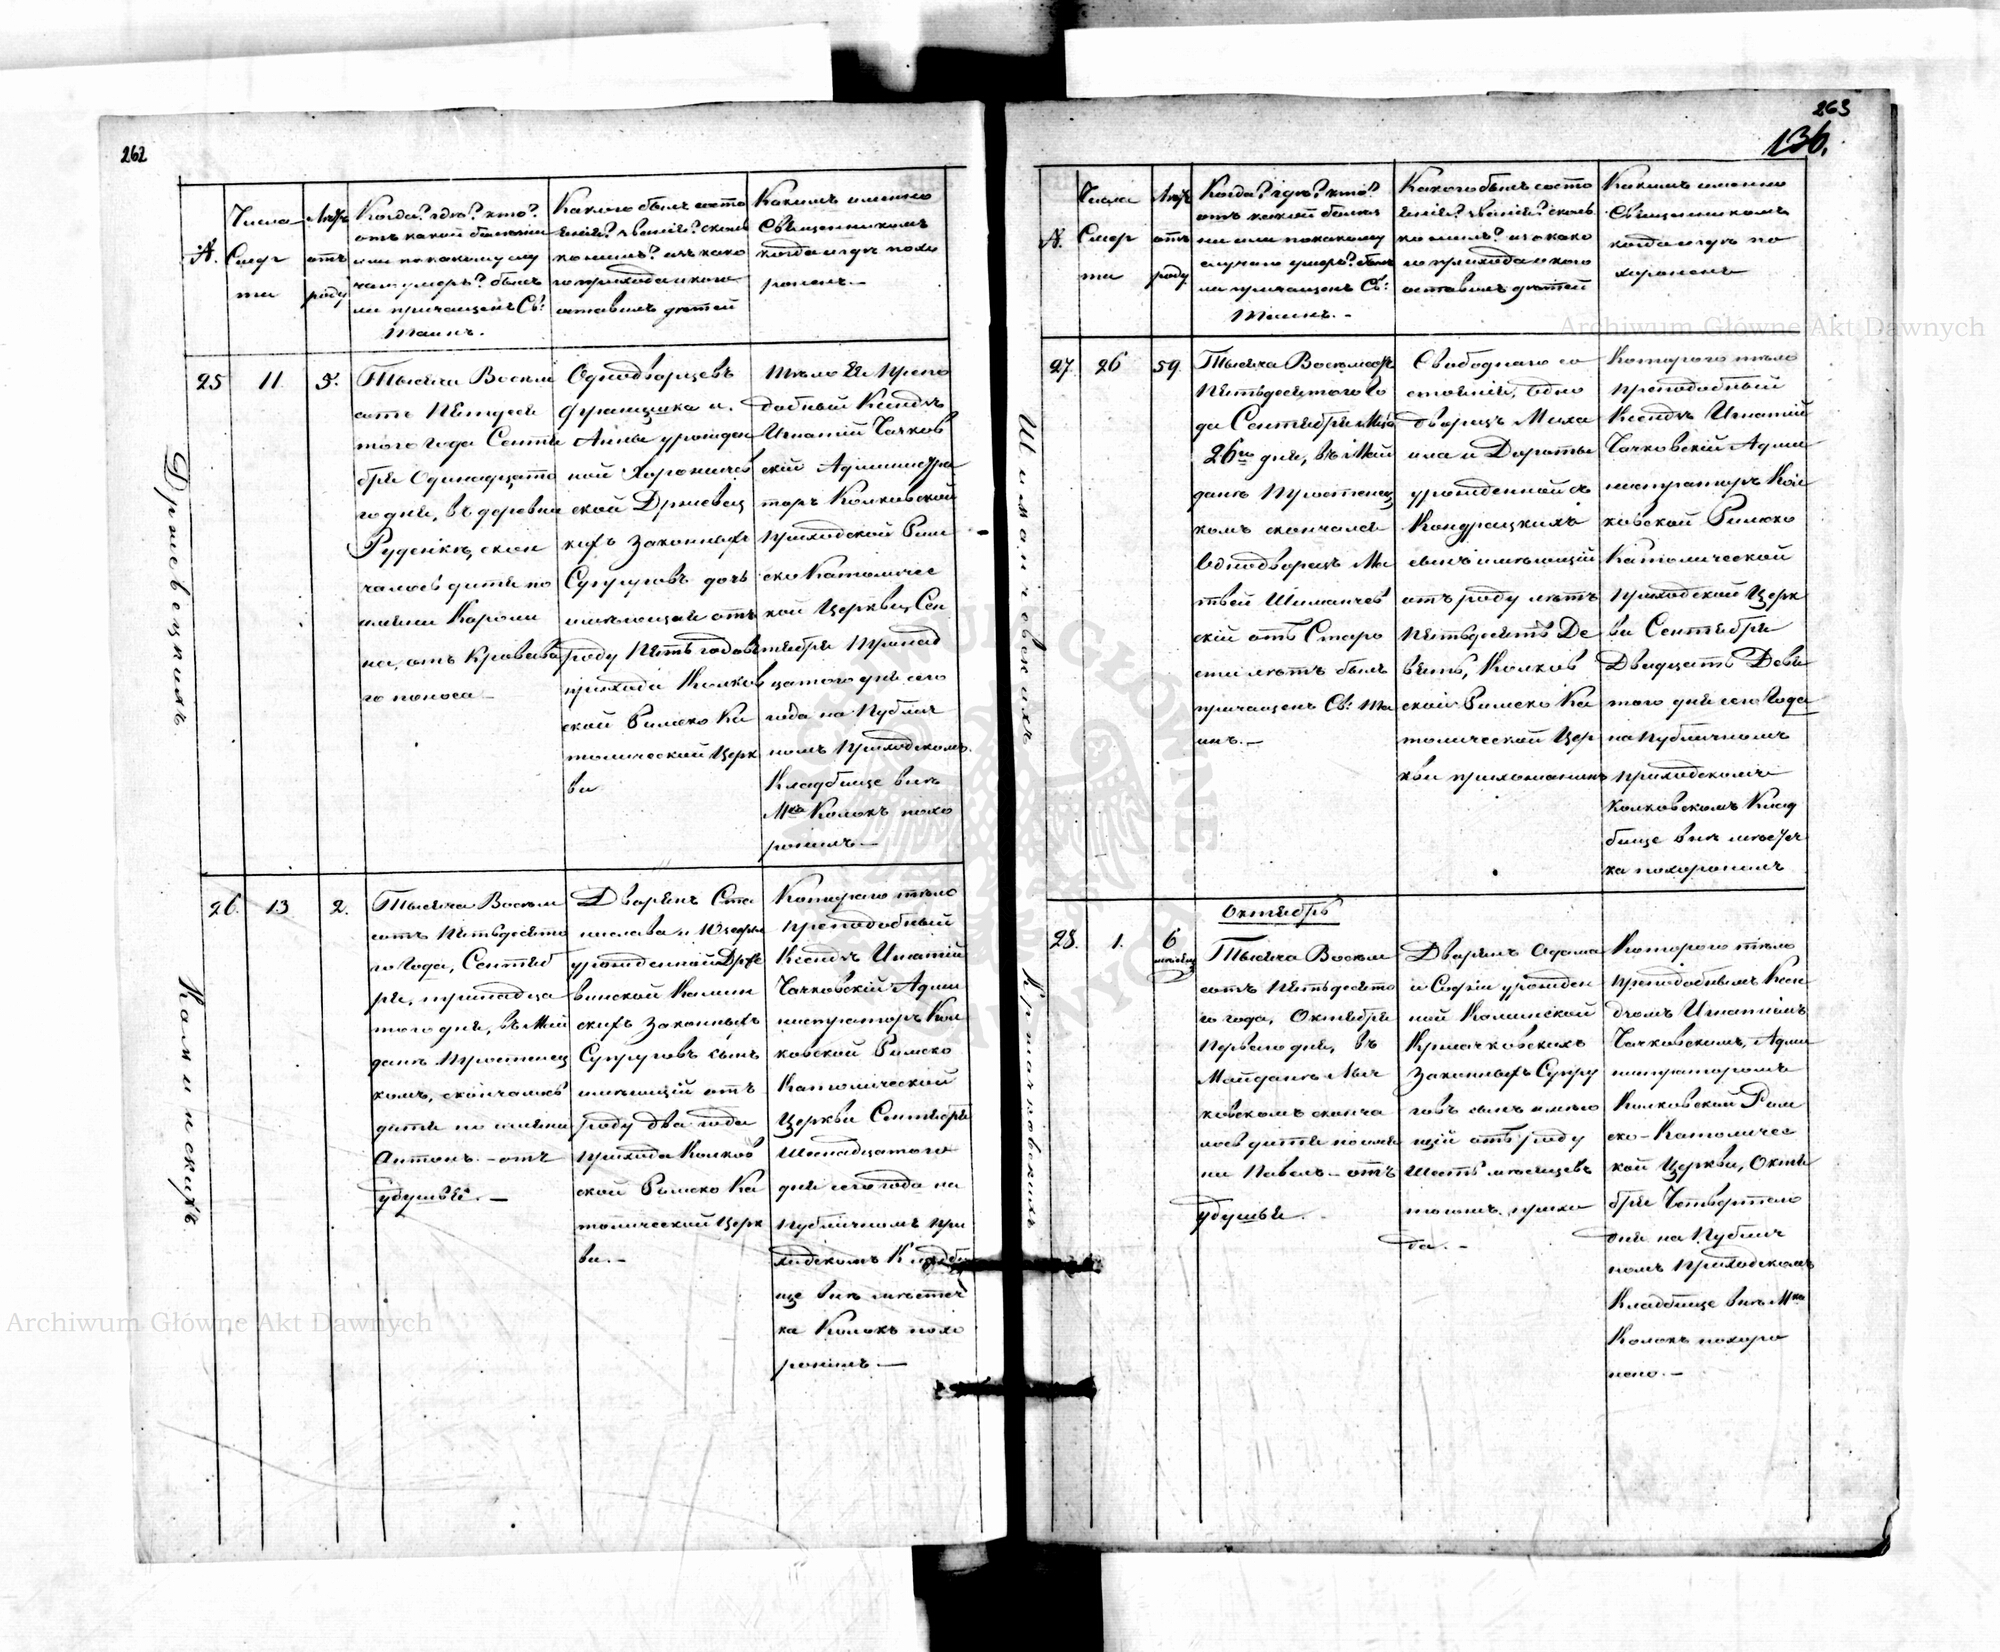 262
№.
Числа
Смер
ти
Лѣтъ
отъ
роду
Когда? гдѣ? кто?
отъ какой болезни
или по какому слу
чаю умеръ? былъ
ли причащенъ Св:
Таинъ.
Какого былъ состо
янія? званія? сколь
ко
го прихода и кого
оставилъ детей
Какимъ именно
Священникомъ
когда и гдѣ похо
роненъ.
Држевецкихъ
25
11.
5.
Тысяча Восем
сотъ Пятдеся
того года Сентя
бря Одинадцато
го дня, въ деревни
Руденкѣ, скон
чалось дитя по
имени Кароли
на, отъ Кроваво
го поноса
Однодворцевъ
Францишка и
Анны урожден
ной
ской Држевец
кихъ законныхъ
Супруговъ дочь
имѣющая отъ
роду Пять годовъ
прихода Колков
ской Римско Ка
толической Церк
ви
Тѣло Ея Препо
добный Ксендзъ
Игнатій Чачков
скій Администра
торъ Колковской
приходской Рим
ско Католичес
кой Церкви, Сен
тября Тринад
цатого дня сего
года на Публич
номъ Приходскомъ
Кладбище внѣ
Мка Колокъ похо
ронилъ.—
Каминскихъ
26.
13
2.
Тысяча Восем
сотъ Пятьдесято
го Года, Сентяб
ря, тринадца
того дня, въ Май
данѣ Простенец
комъ, скончалось
дитя по имени
Антонъ.— отъ
удушья.—
Дворянъ Ста
нислава и Юзефы
урожденной Држе
винской Камин
скихъ Законныхъ
Супруговъ сынъ
имѣющій отъ
роду два года
прихода Колков
ской Римско Ка
толической Церк
ви.—
Которого тѣло
преподобный
Ксендзъ Игнатій
Чачковскій Адми
нистраторъ Кол
ковской Римско
Католической
Церкви Сентября
Шеснадцатого
дня сего года на
Публичномъ При
ходскомъ Кладби
ще внѣ местеч
ка Колокъ похо
ронилъ—
263
136.
№.
Числа
Смер
ти
Лѣтъ
отъ
роду
Когда? гдѣ? кто?
отъ какой болез
ни или по какому
случаю умеръ? былъ
ли причащенъ Св:
Таинъ.—
Какого былъ состо
янія? званія? сколь
ко
го прихода и кого
оставилъ детей
Какимъ именно
Священникомъ
когда и гдѣ по
хороненъ
Шиманчовскихъ
27.
26
59.
Тысяча Восемсотъ
Пятьдесятого Го
да Сентября мца
26го дня, въ Май
данѣ Простенец
комъ скончался
Однодворецъ Ма
твей Шиманчев
скій отъ Старо
сти лѣтъ былъ
причащенъ Св: Та
инъ.—
Свободнаго со
стоянія, Одно
дворецъ Миха
ила и Дороты
урожденной съ
Кондрацкихъ
сынъ имѣющій
отъ роду лѣтъ
Пятьдесятъ Де
вять, Колков
ской Римско Ка
толической Цер
кви прихожанинъ
Которого тѣло
преподобный
Ксендзъ Игнатій
Чачковскій Адми
нистраторъ Кол
ковской Римско
Католической
приходской Церк
ви Сентября
Двадцать Девя
того дня сего Года
на Публичномъ
приходскомъ
Колковскомъ Клад
бище внѣ местеч
ка похоронилъ
Кржачковскихъ
28.
1.
6
месяцевъ
Октябрь
Тысяча Восем
сотъ Пятьдесято
го года, Октября
Первого дня, въ
Майданѣ Лыч
ковскомъ сконча
лось дитя по име
ни Павелъ— отъ
удушья.
Дворянъ Адама
и Софіи урожден
ной Калинской
Кржачковскихъ
Законныхъ Супру
говъ сынъ имѣю
щій отъ роду
Шесть месяцевъ
тогожъ прихо
да.—
Которого тѣло
преподобнымъ Ксен
дзомъ Игнатіемъ
Чачковскимъ, Адми
нистраторомъ
Колковской Рим
ско-Католичес
кой Церкви, Октя
бря Четвертого
дня на Публич
номъ Приходскомъ
Кладбище внѣ Мка
Колокъ похоро
нено.—
Archiwum Główne Akt Dawnych
Archiwum Główne Akt Dawnych